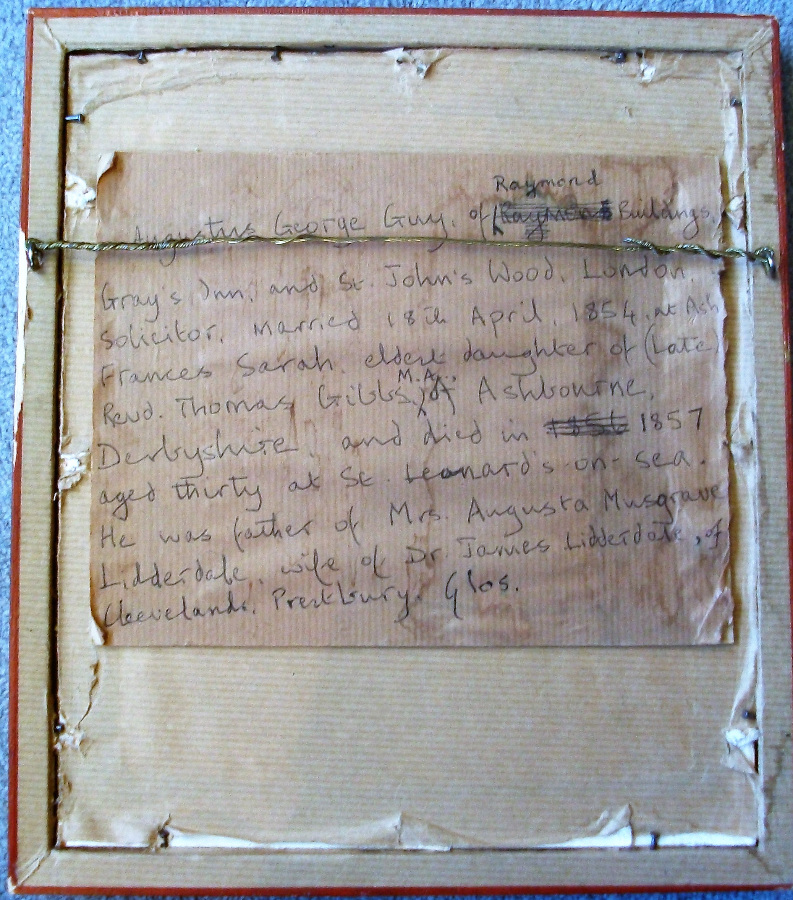 Raymond
Augustus George Guy, of Raymond Buildings,
Gray's Inn, and St. John's Wood, London.
Solicitor, married 18th April, 1854, at Ash
Frances Sarah, eldest daughter of (Late)
Revd. Thomas Gibbs, M.A., of Ashbourne,
Derbyshire, and died in 1856 1857
aged thirty at St. Leonard's-on-Sea.
He was father of Mrs. Augusta Musgrave
Lidderdale, wife of Dr. James Lidderdale, of
Cleevelands, Prestbury, Glos.